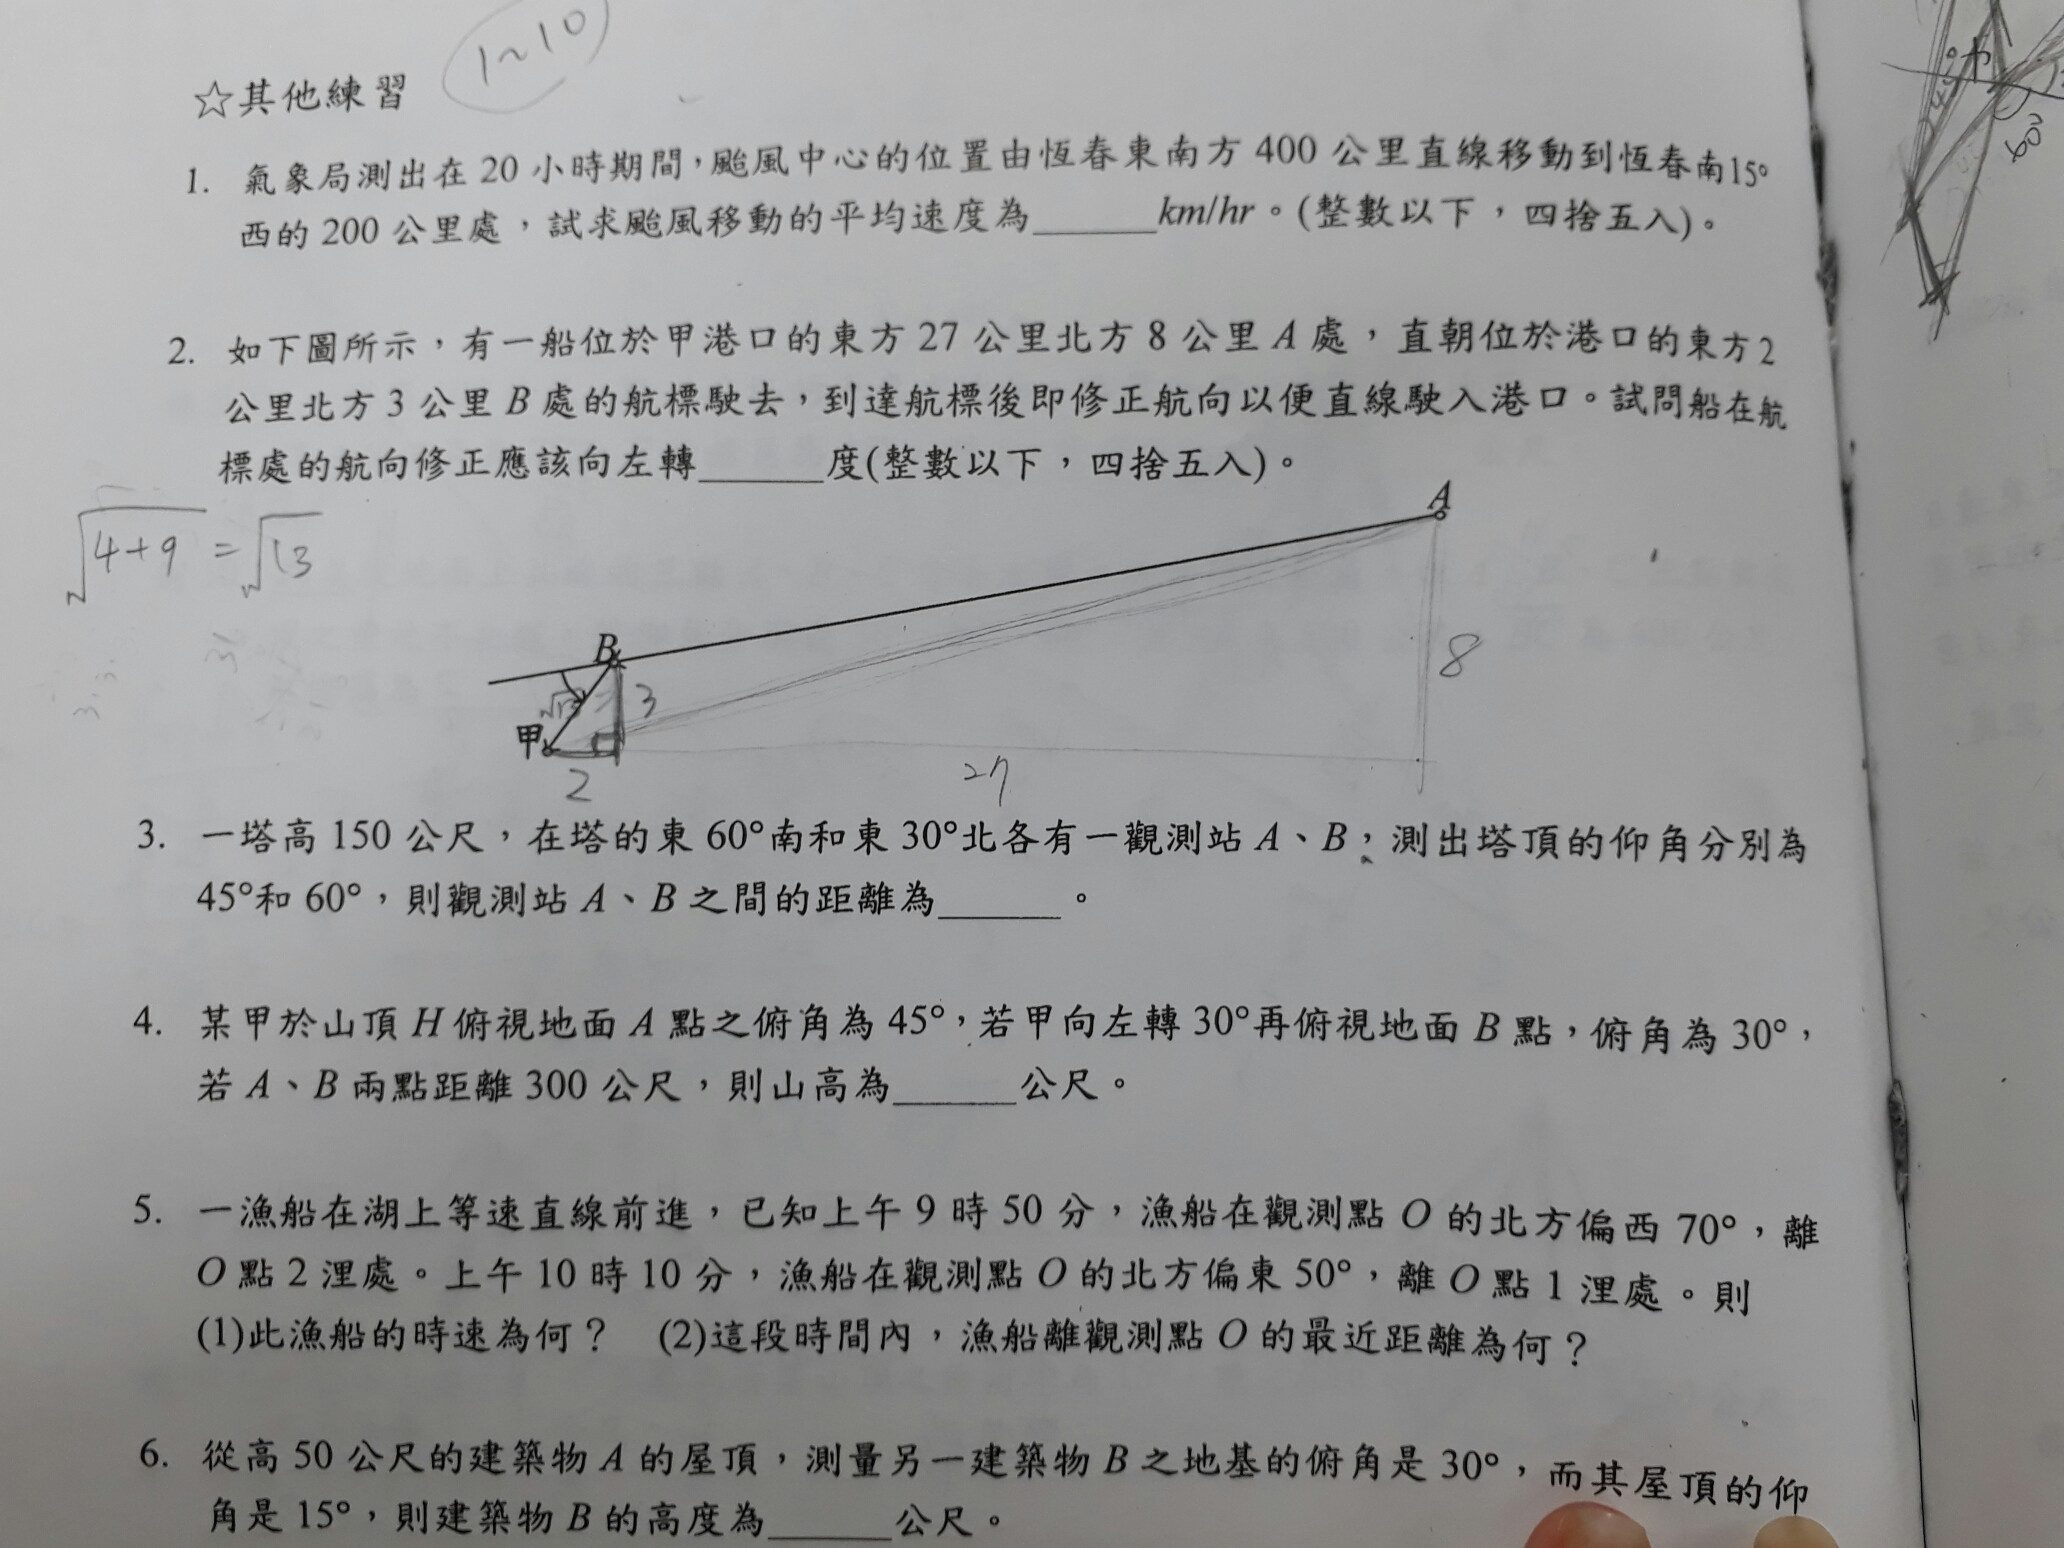 1~10
☆其他練習
1. 氣象局測出在 20 小時期間，颱風中心的位置由恆春東南方 400 公里直線移動到恆春南15°
西的 200 公里處，試求颱風移動的平均速度為______km/hr。(整數以下，四捨五入)。
2. 如下圖所示，有一船位於甲港口的東方 27 公里北方 8 公里 A 處，直朝位於港口的東方 2
公里北方 3 公里 B 處的航標駛去，到達航標後即修正航向以便直線駛入港口。試問船在航
標處的航向修正應該向左轉______度(整數以下，四捨五入)。
√4+9 = √13
A
B
8
√13
3
甲
2
27
3. 一塔高 150 公尺，在塔的東 60°南和東 30°北各有一觀測站 A、B，測出塔頂的仰角分別為
45°和 60°，則觀測站 A、B 之間的距離為______。
4. 某甲於山頂 H 俯視地面 A 點之俯角為 45°，若甲向左轉 30°再俯視地面 B 點，俯角為 30°，
若 A、B 兩點距離 300 公尺，則山高為______公尺。
5. 一漁船在湖上等速直線前進，已知上午 9 時 50 分，漁船在觀測點 O 的北方偏西 70°，離
O 點 2 浬處。上午 10 時 10 分，漁船在觀測點 O 的北方偏東 50°，離 O 點 1 浬處。則
(1)此漁船的時速為何？ (2)這段時間內，漁船離觀測點 O 的最近距離為何？
6. 從高 50 公尺的建築物 A 的屋頂，測量另一建築物 B 之地基的俯角是 30°，而其屋頂的仰
角是 15°，則建築物 B 的高度為______公尺。